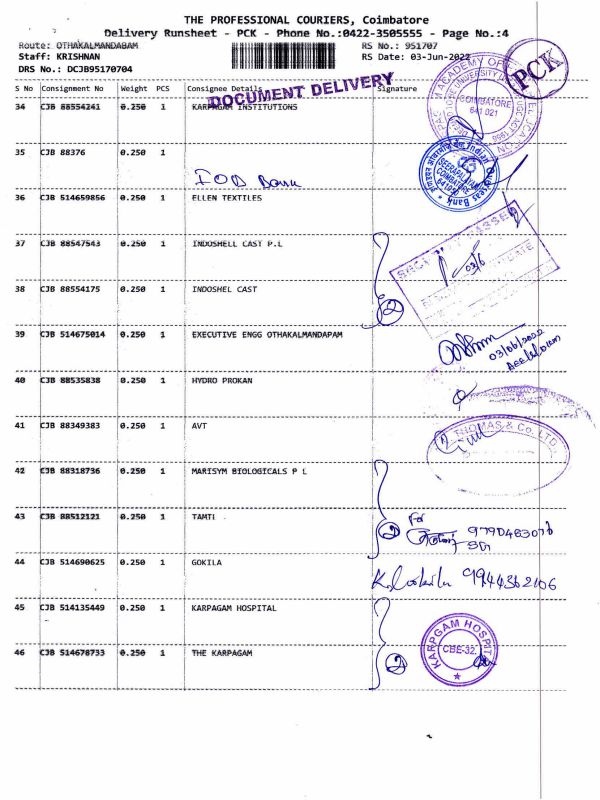 THE PROFESSIONAL COURIERS, Coimbatore
Delivery Runsheet - PCK - Phone No.:0422-3505555 - Page No.:4
Route: OTHAKALMANDABAM RS No.: 951707
Staff: KRISHNAN RS Date: 03-Jun-2022
DRS No.: DCJB95170704
PCK
DOCUMENT DELIVERY
S No Consignment No Weight PCS Consignee Details Signature
34 CJB 88554241 0.250 1 KARPAGAM INSTITUTIONS
COIMBATORE
641 021
35 CJB 88376 0.250 1
IOB Bank
Indian Overseas Bank
SEERAPALAYAM
COIMBATORE
36 CJB 514659856 0.250 1 ELLEN TEXTILES
37 CJB 88547543 0.250 1 INDOSHELL CAST P.L
03/6
38 CJB 88554175 0.250 1 INDOSHEL CAST
2
39 CJB 514675014 0.250 1 EXECUTIVE ENGG OTHAKALMANDAPAM
03/06/2022
40 CJB 88535838 0.250 1 HYDRO PROKAN
41 CJB 88349383 0.250 1 AVT
THOMAS & Co. LTD.
42 CJB 88318736 0.250 1 MARISYM BIOLOGICALS P L
43 CJB 88512121 0.250 1 TAMTI
2
For
44 CJB 514690625 0.250 1 GOKILA
9944362106
45 CJB 514135449 0.250 1 KARPAGAM HOSPITAL
46 CJB 514678733 0.250 1 THE KARPAGAM
2
KARPGAM HOSPIT
CBE-32.